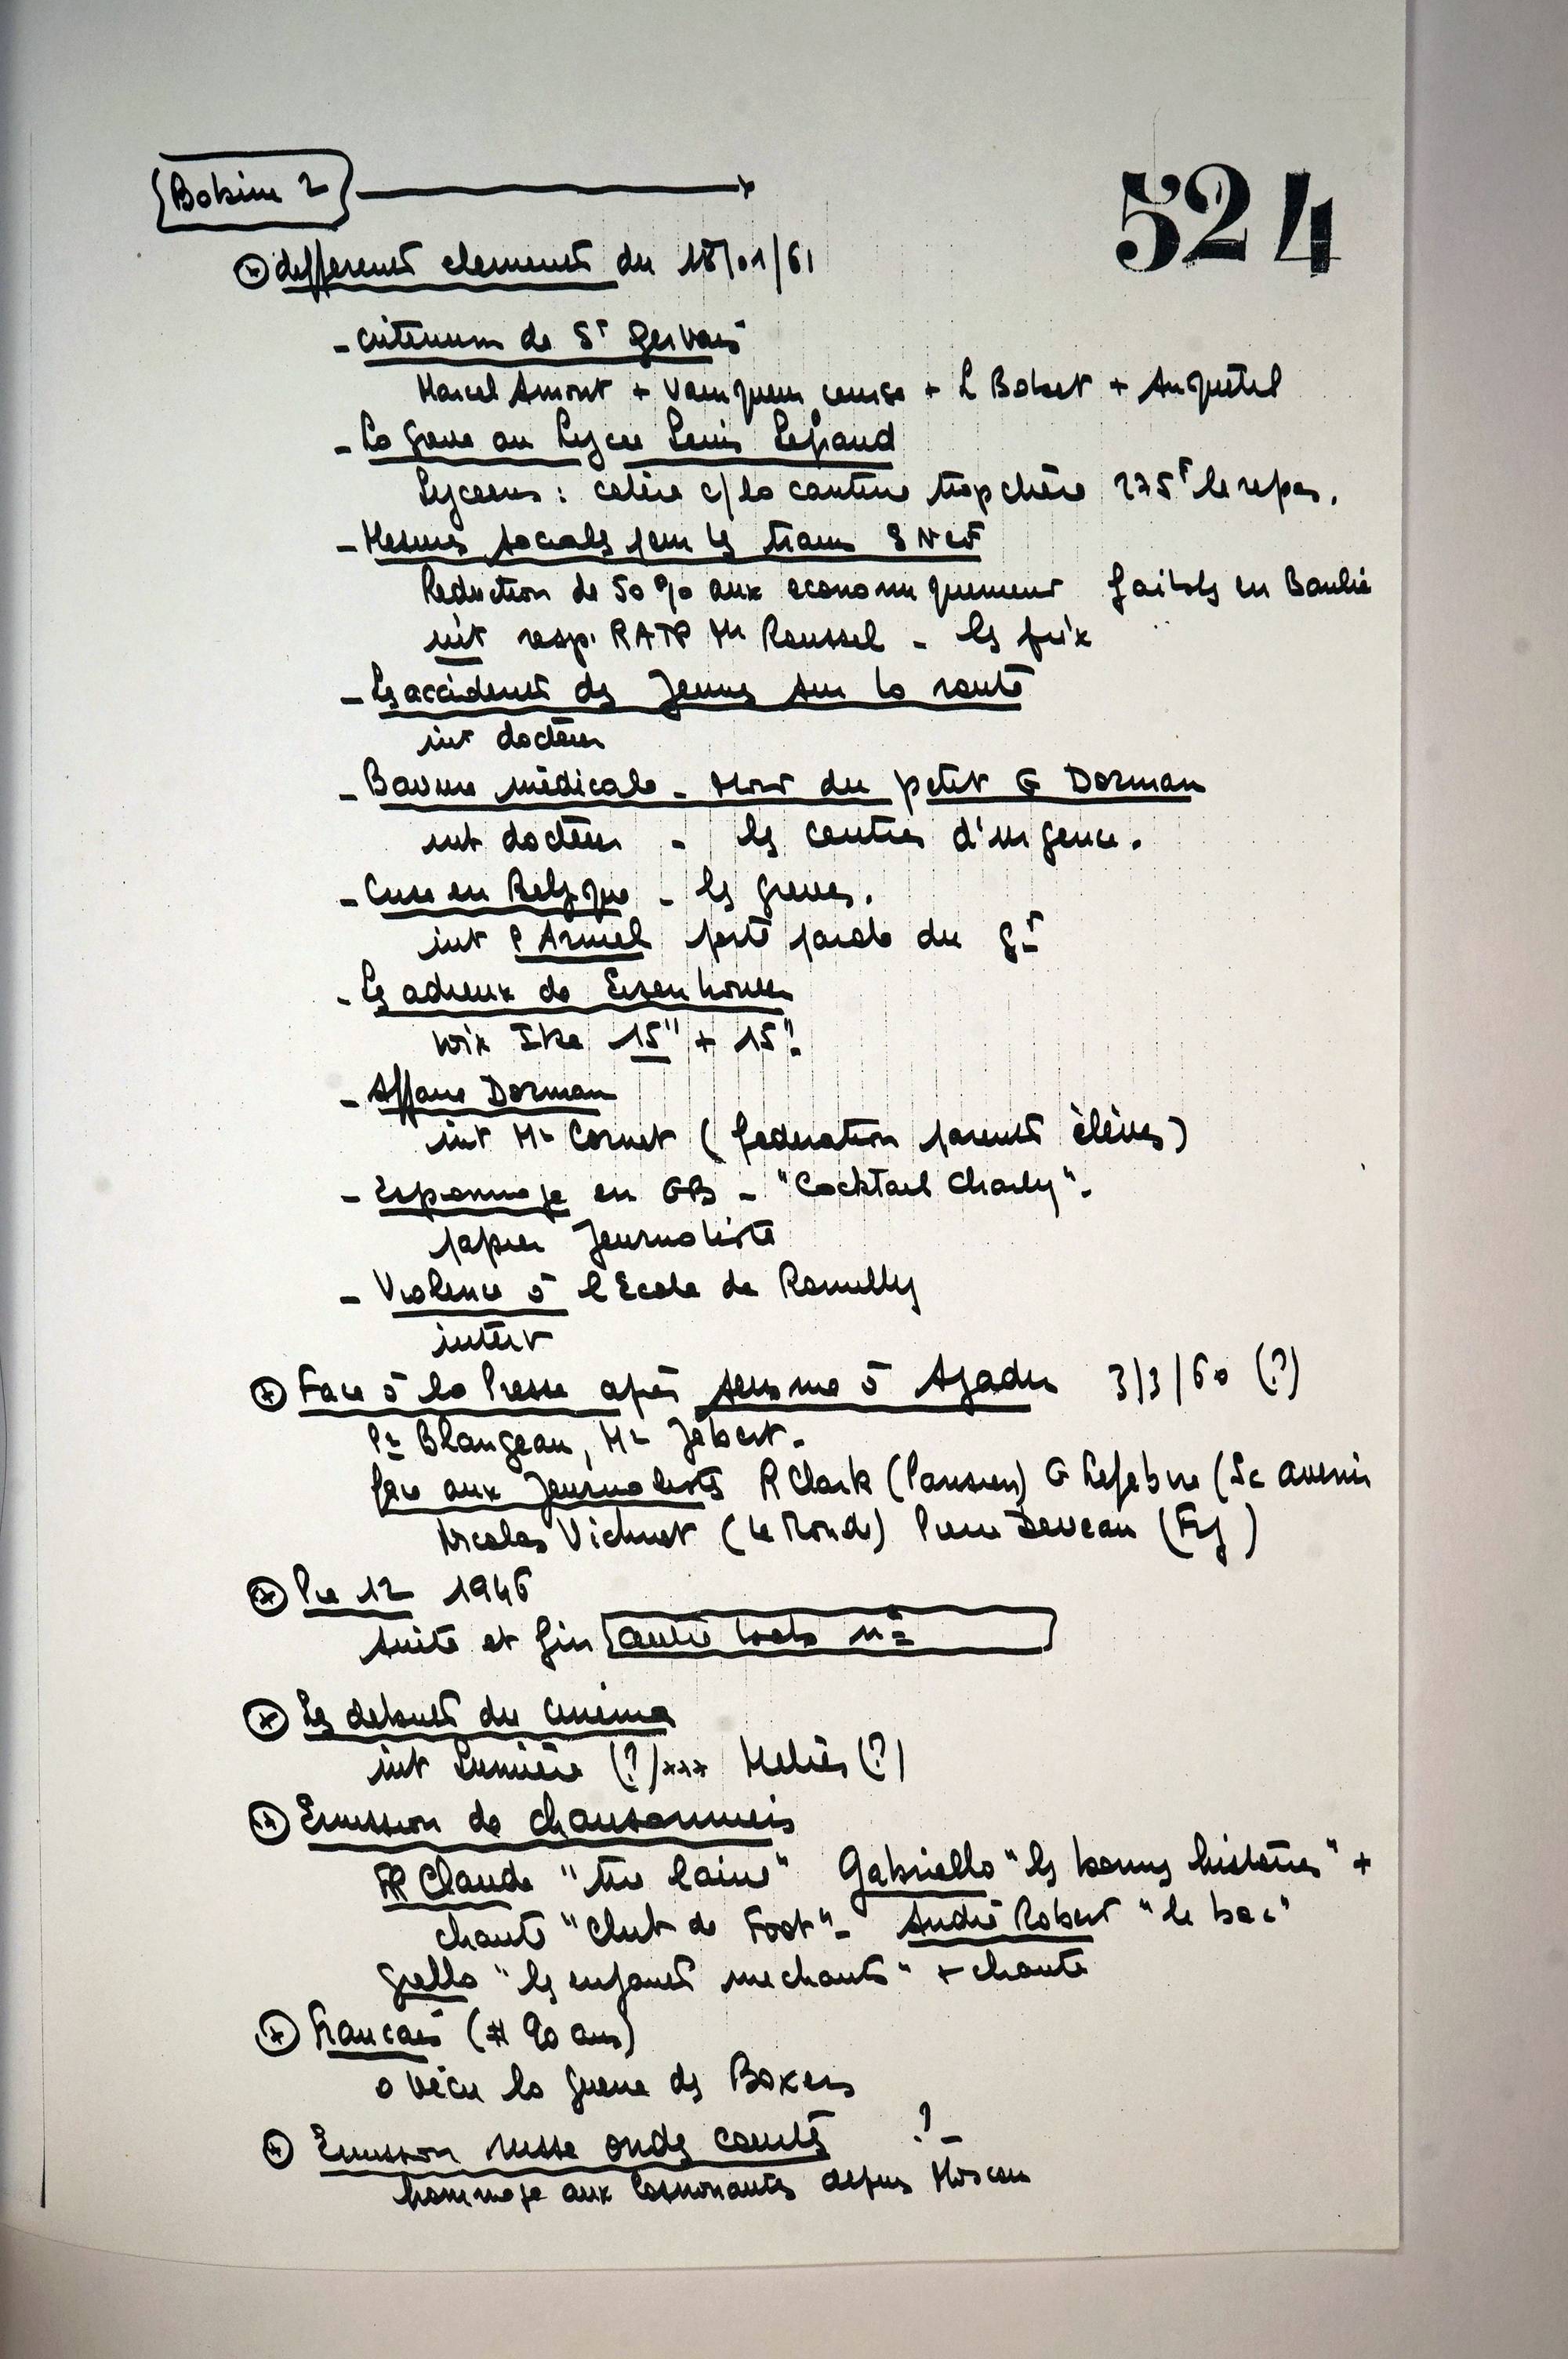 Bobine 2
524
differents elements du 18/01/61
- criterium de St Gervais
Marcel Amont + Vainqueur course + L Bobet + Anquetil
- La greve au Lycee Louis Legrand
Lyceens : colère c/ la cantine trop chère 275F le repas.
- Mesures sociales pour les trains SNCF
Reduction de 50% aux economiquement faibles en Banlie
int resp. RATP Mr Roussel - les prix
- Les accidents des Jeunes sur la route
int docteur
- Bavure médicale - Mort du petit G Dorman
int docteur - les centres d'urgence.
- Crise en Belgique - les greves.
int P Armel porte parole du gt
- Les adieux de Eisenhower
voix Ike 15" + 15"
- Affaire Dorman
int Mr Cornet (federation parents élèves)
- Espionnage en GB - "Cocktail Charly".
papier Journaliste
- Violence à l'Ecole de Romilly
interv
Face à la Presse après seisme à Agadir 3/3/60 (?)
Pr Blangeau, Mr Jobert.
face aux Journalistes R Clark (Parisien) G Lefebvre (Sc avenir
Nicolas Vichnet (Le Monde) Pierre Deveau (Fig)
Pie 12 1946
suite et fin autre bobo n=
Les debuts du cinema
int Lumière (?) +++ Meliès (?)
Emission de chansonniers
PR Claude "tire laine" Gabriello "les bonnes histoires" +
chante "Club de Foot" - André Robert "le bac"
Grello "les enfants mechants" + chante
Francais (# 90 ans)
a vécu la guerre des Boxers
Emission russe ondes courtes ?
hommage aux Cosmonautes depuis Moscou